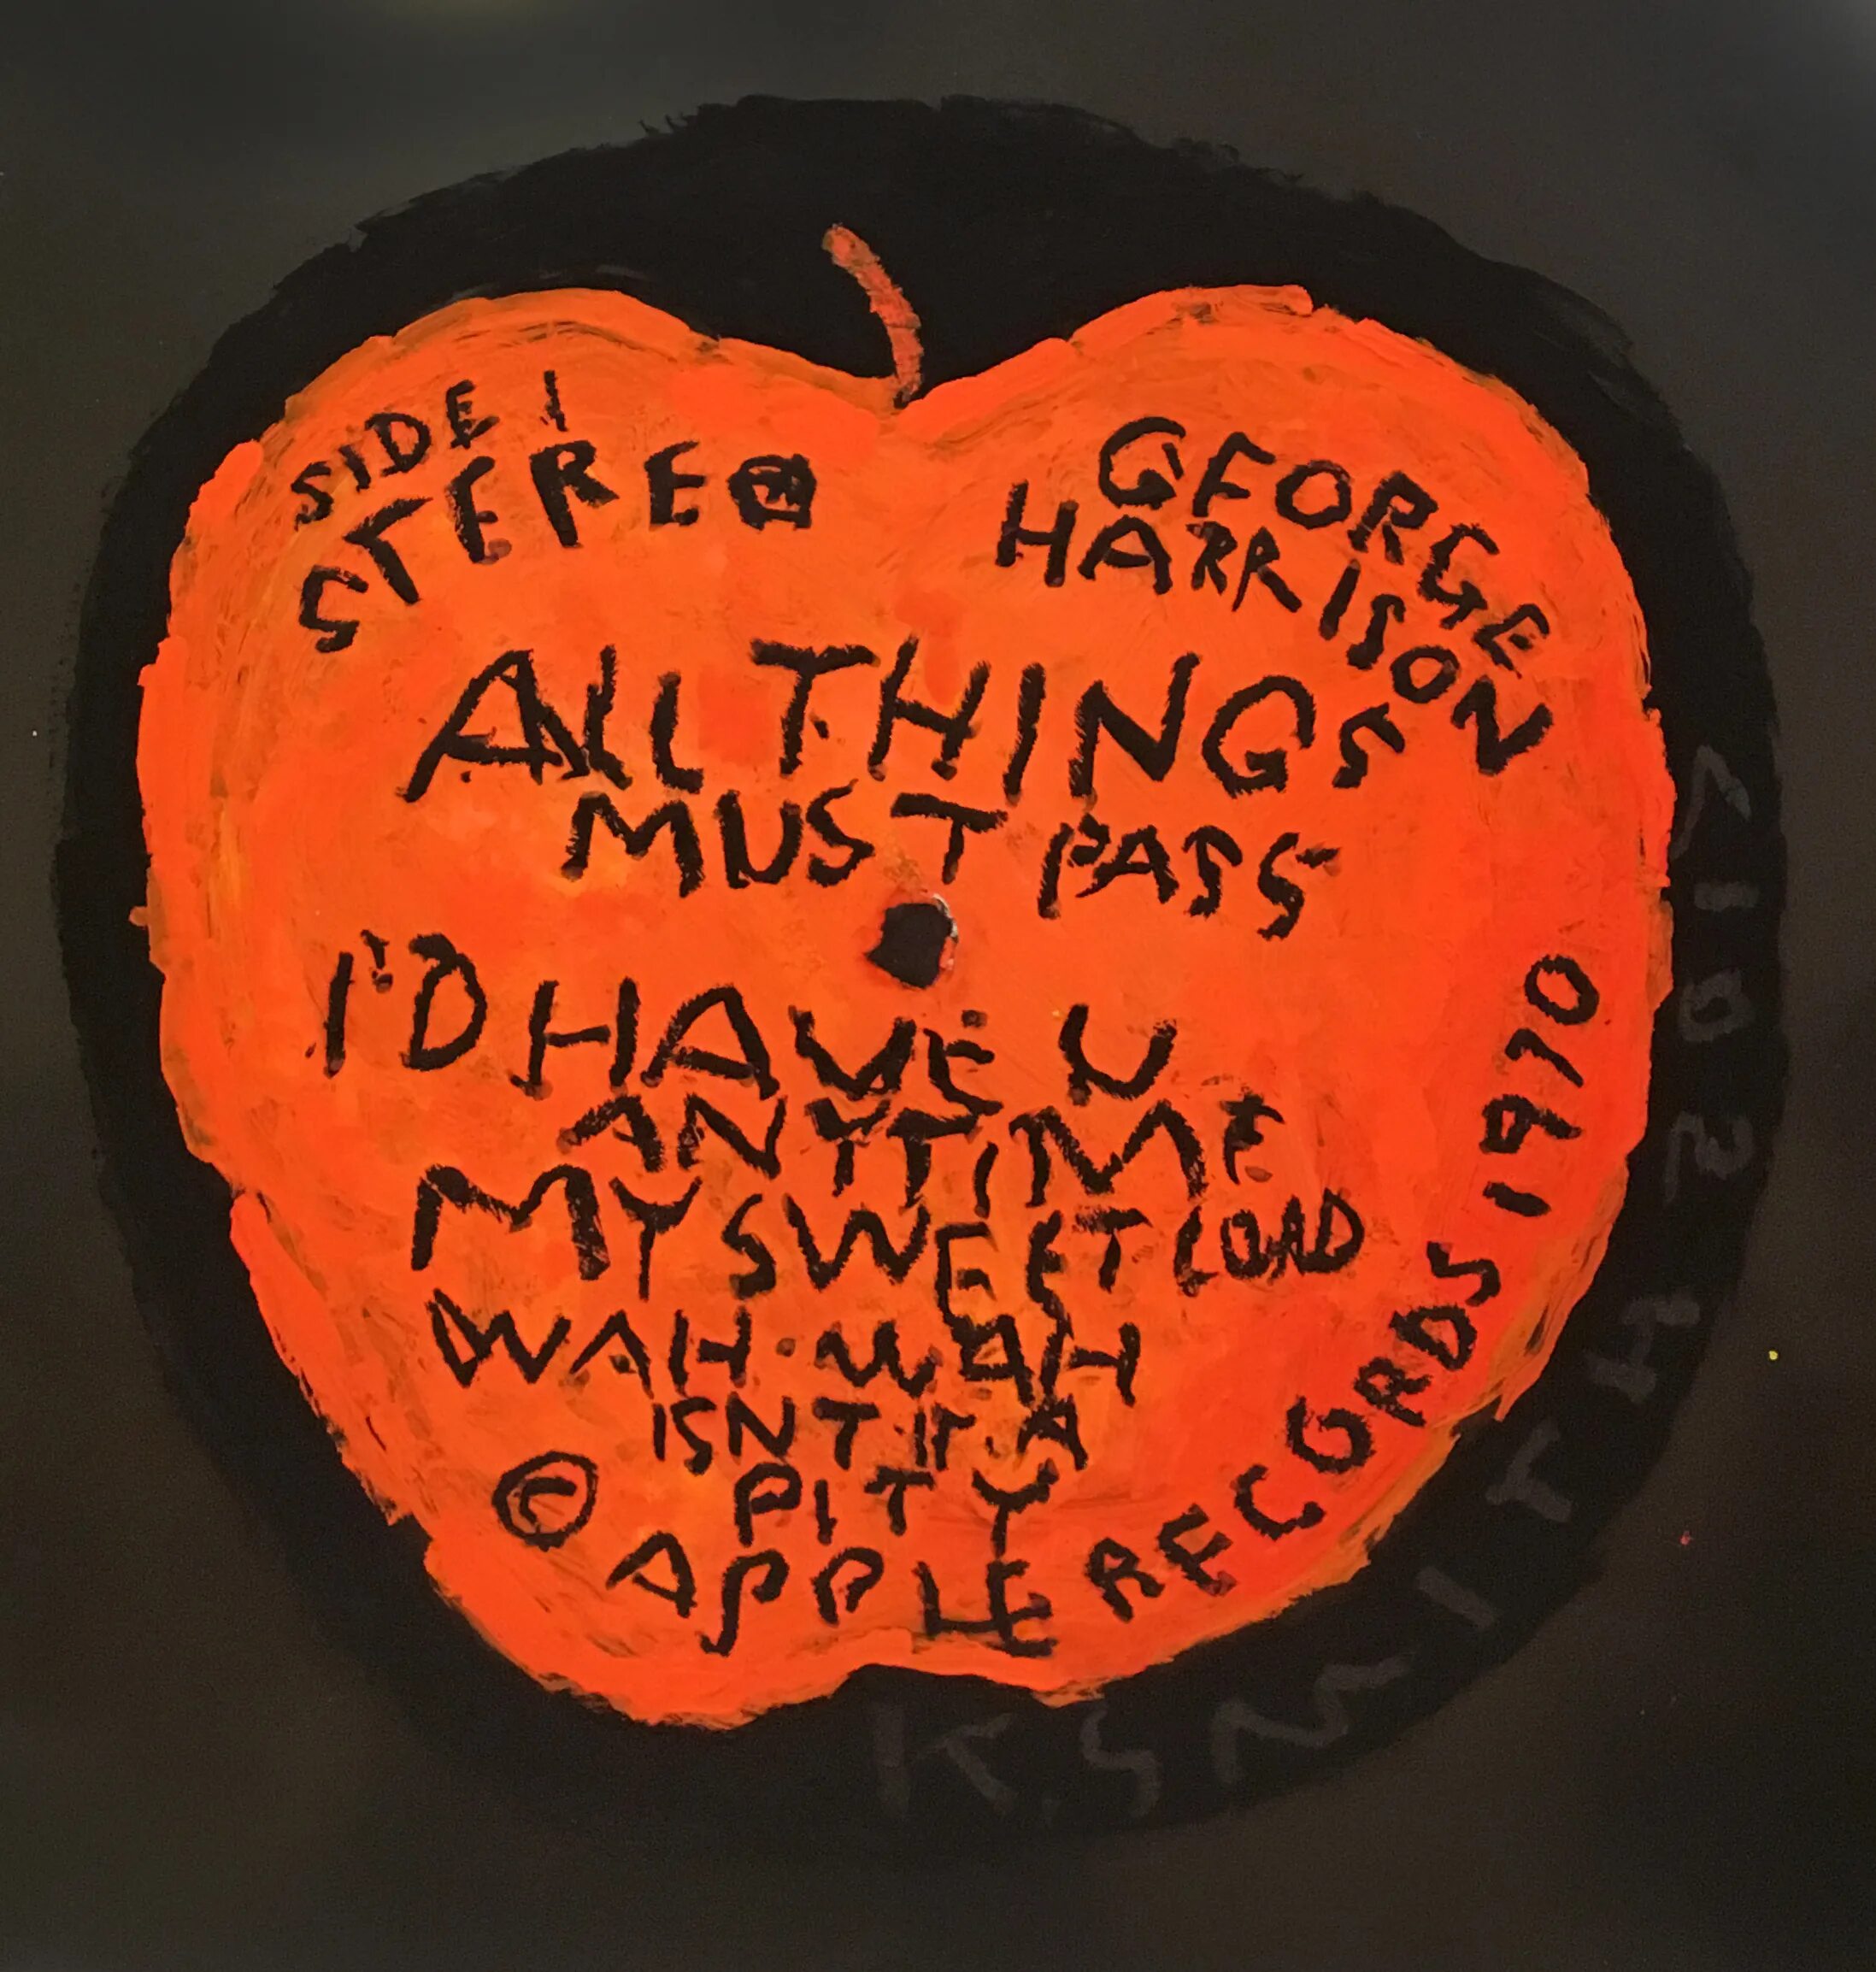 SIDE 1
STEREO
GEORGE
HARRISON
ALL THINGS
MUST PASS
I'D HAVE U
ANYTIME
MY SWEET LOAD
WAH·WAH
ISNT IT A
PITY
© APPLE RECORDS 1970
K SMITH